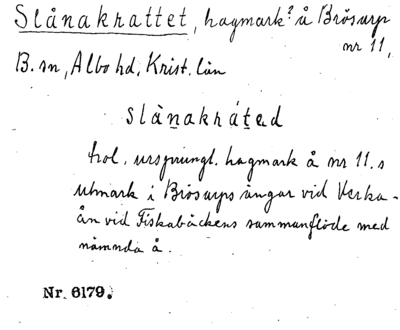 Slånakrattet, hagmark? å Brösarp
nr 11,
B. sn, Albo hd, Krist. län
slån̲akrát̲ed
trol. ursprungl. hagmark å nr 11.s
utmark i Brösarps ängar vid Verka-
ån vid Fiskabäckens sammanflöde med
nämnda å.
Nr. 6179.